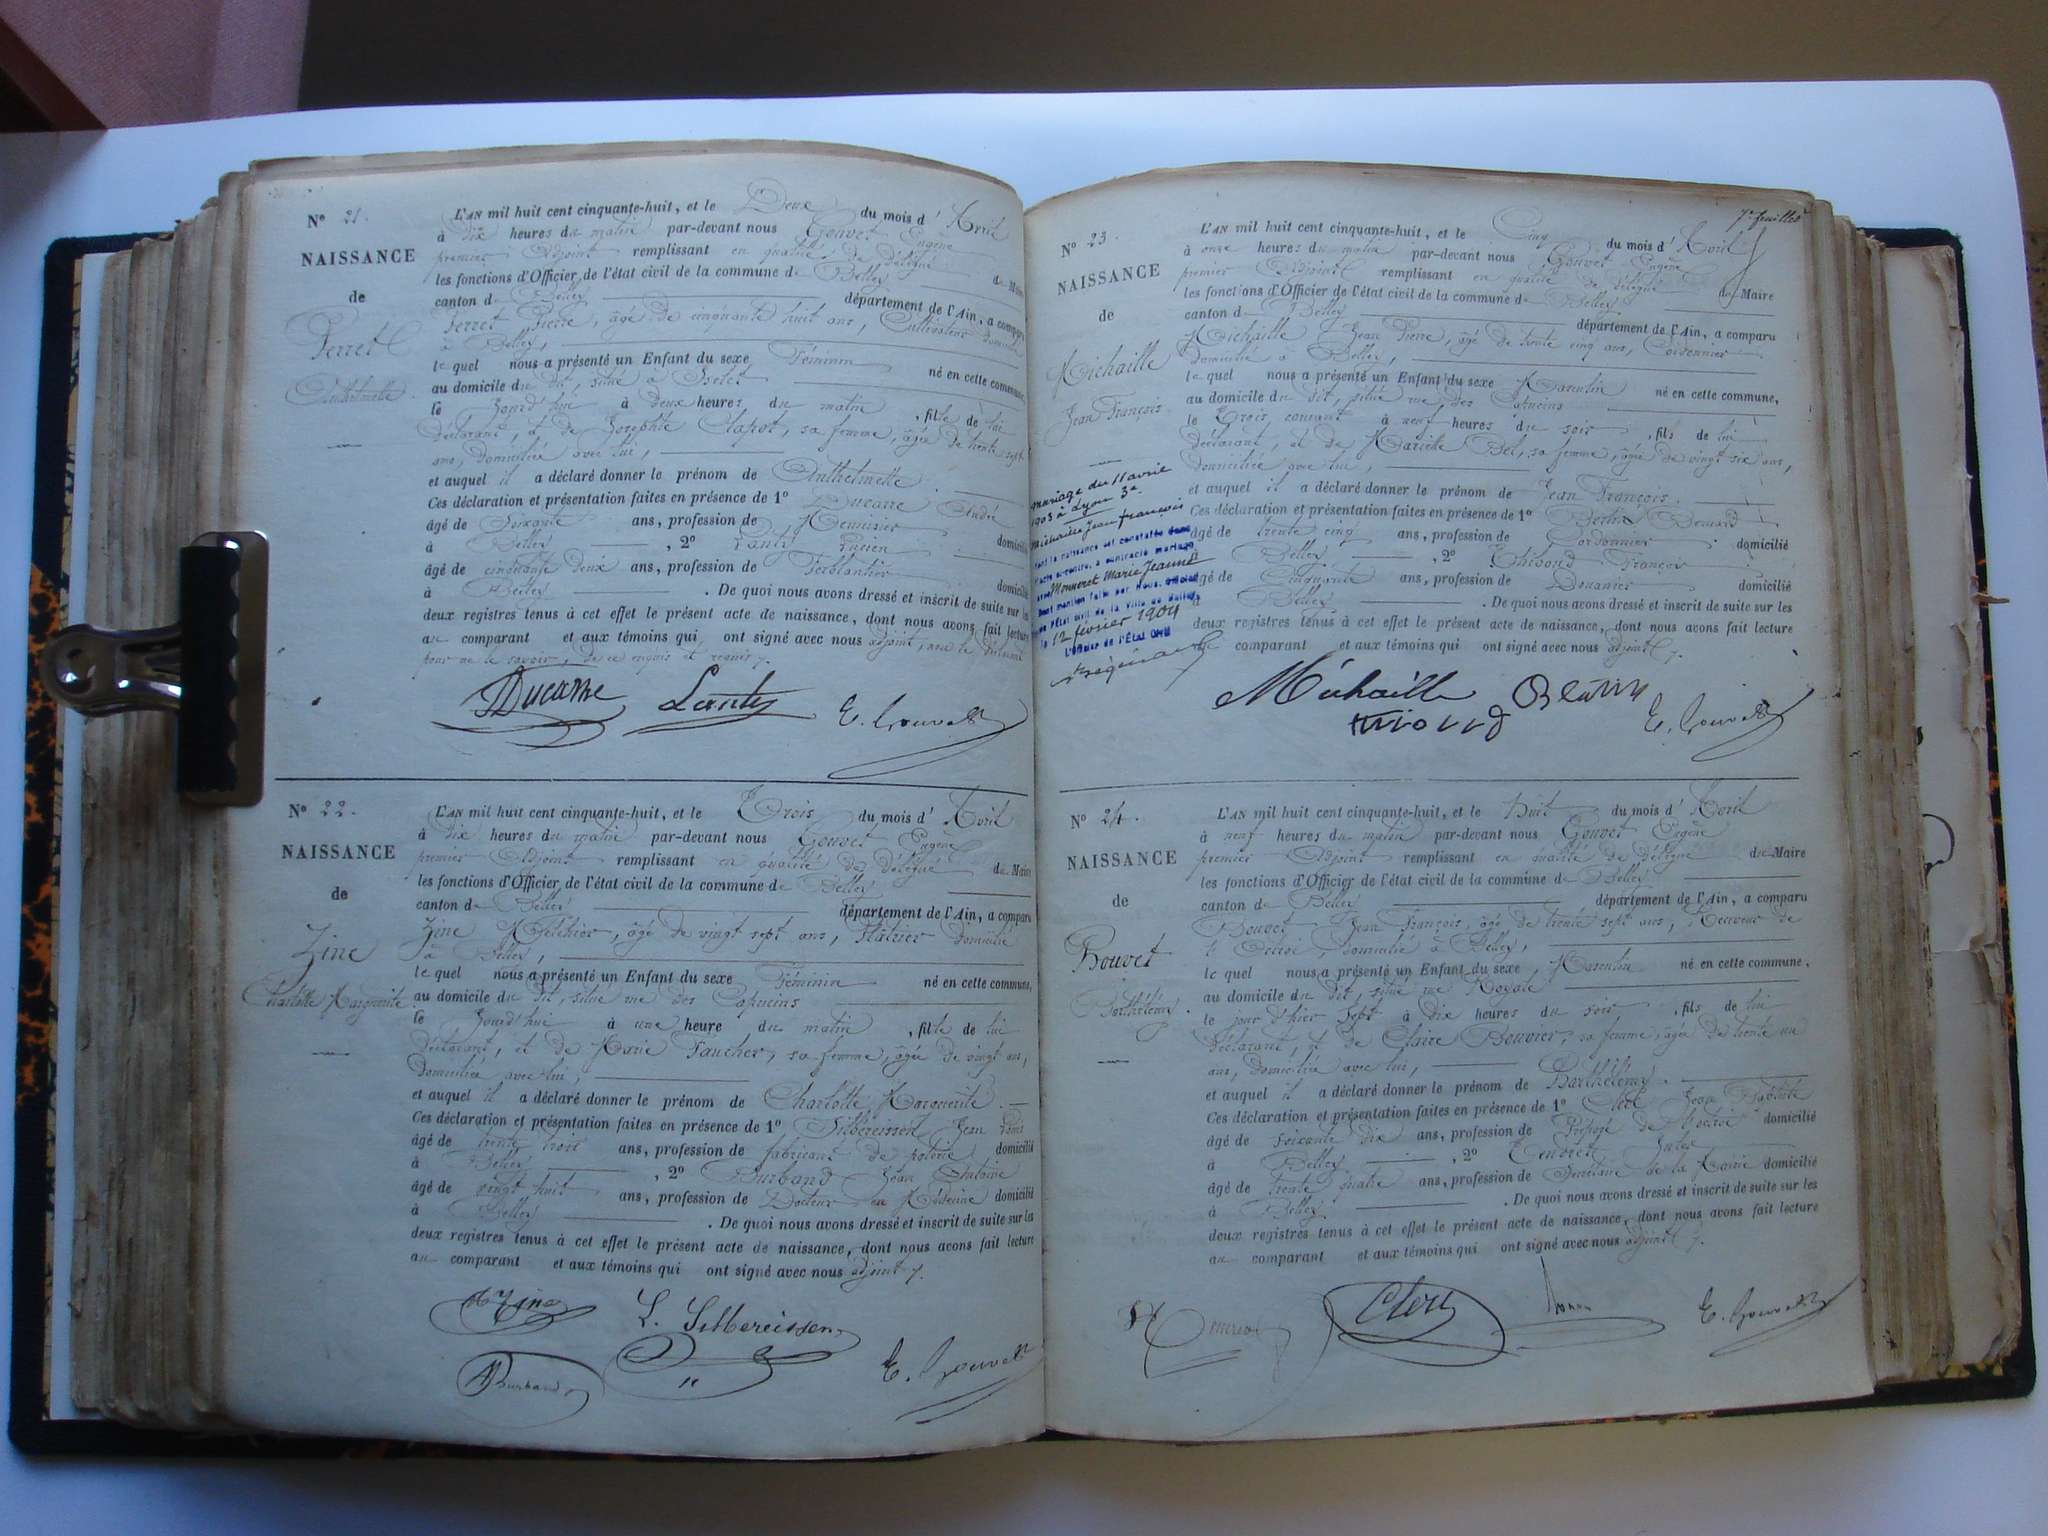 N° 21.
NAISSANCE
de
Ferret
Anthelmette.
L'AN mil huit cent cinquante-huit, et le Deux du mois d'Avril
à dix heures du matin par-devant nous Gouvet Eugène
premier Adjoint remplissant en qualité de délégué du Maire
les fonctions d'Officier de l'état civil de la commune de Belley
canton de Belley département de l'Ain, a comparu
Ferret Pierre, âgé de cinquante huit ans, Cultivateur domicilié
à Belley,
le quel nous a présenté un Enfant du sexe Féminin né en cette commune,
au domicile du dit, situé à
le Jourd'hui à deux heures du matin, fille de lui
déclarant, et de Josephte Clapot, sa femme, âgée de trente sept
ans, domiciliée avec lui,
et auquel il a déclaré donner le prénom de Anthelmette.
Ces déclaration et présentation faites en présence de 1° Ducarre André
âgé de Soixante ans, profession de Menuisier domicilié
à Belley, 2° Lanty Lucien
âgé de cinquante deux ans, profession de Ferblantier domicilié
à Belley. De quoi nous avons dressé et inscrit de suite sur les
deux registres tenus à cet effet le présent acte de naissance, dont nous avons fait lecture
au comparant et aux témoins qui ont signé avec nous adjoint, non le déclarant
pour ne le savoir, de ce enquis et requis.
Ducarre Lanty E. Gouvet
N° 22.
NAISSANCE
de
Zine
Charlotte Marguerite.
L'AN mil huit cent cinquante-huit, et le Trois du mois d'Avril
à dix heures du matin par-devant nous Gouvet Eugène
premier Adjoint remplissant en qualité de délégué du Maire
les fonctions d'Officier de l'état civil de la commune de Belley
canton de Belley département de l'Ain, a comparu
Zine Melchior, âgé de vingt sept ans, Plâtrier domicilié
à Belley,
le quel nous a présenté un Enfant du sexe Féminin né en cette commune,
au domicile du dit, situé rue des Capucins
le Jourd'hui à une heure du matin, fille de lui
déclarant, et de Marie Faucher, sa femme, âgée de vingt ans,
domiciliée avec lui,
et auquel il a déclaré donner le prénom de Charlotte Marguerite.
Ces déclaration et présentation faites en présence de 1° Silbereissen Jean Louis
âgé de trente trois ans, profession de fabricant de poterie domicilié
à Belley, 2° Burband Jean Antoine
âgé de vingt huit ans, profession de Docteur en Médecine domicilié
à Belley. De quoi nous avons dressé et inscrit de suite sur les
deux registres tenus à cet effet le présent acte de naissance, dont nous avons fait lecture
au comparant et aux témoins qui ont signé avec nous adjoint.
Zine L. Silbereissen
Burband E. Gouvet
7e feuillet
N° 23.
NAISSANCE
de
Michaille
Jean François.
mariage du 11 avril
1903 à Lyon 3e
Michaille Jean François
dont la naissance est constatée dans
l'acte ci-contre, a contracté mariage
avec Monneret Marie Jeanne
Dont mention faite par Nous, Officier
de l'État civil de la Ville de Belley
le 12 février 1904
L'Officier de l'État Civil
L'AN mil huit cent cinquante-huit, et le Cinq du mois d'Avril
à onze heures du matin par-devant nous Gouvet Eugène
premier Adjoint remplissant en qualité de délégué du Maire
les fonctions d'Officier de l'état civil de la commune de Belley
canton de Belley département de l'Ain, a comparu
Michaille Jean Pierre, âgé de trente cinq ans, Cordonnier
domicilié à Belley,
le quel nous a présenté un Enfant du sexe Masculin né en cette commune,
au domicile du dit, situé rue des Capucins
le Trois courant à neuf heures du soir, fils de lui
déclarant, et de Mariette Bel, sa femme, âgée de vingt six ans,
domiciliée avec lui,
et auquel il a déclaré donner le prénom de Jean François.
Ces déclaration et présentation faites en présence de 1°
âgé de trente cinq ans, profession de Cordonnier domicilié
à Belley, 2° François
âgé de Cinquante ans, profession de Douanier domicilié
à Belley. De quoi nous avons dressé et inscrit de suite sur les
deux registres tenus à cet effet le présent acte de naissance, dont nous avons fait lecture
au comparant et aux témoins qui ont signé avec nous adjoint.
Michaille
E. Gouvet
N° 24.
NAISSANCE
de
Bouvet
Barthélemy.
L'AN mil huit cent cinquante-huit, et le huit du mois d'Avril
à neuf heures du matin par-devant nous Gouvet Eugène
premier Adjoint remplissant en qualité de délégué du Maire
les fonctions d'Officier de l'état civil de la commune de Belley
canton de Belley département de l'Ain, a comparu
Bouvet Jean François, âgé de trente sept ans, Receveur de
l'Octroi, domicilié à Belley,
le quel nous a présenté un Enfant du sexe Masculin né en cette commune,
au domicile du dit, situé rue Royale
le jour d'hier Sept à dix heures du soir, fils de lui
déclarant, et de Claire Bouvier, sa femme, âgée de trente un
ans, domiciliée avec lui,
et auquel il a déclaré donner le prénom de Barthélemy.
Ces déclaration et présentation faites en présence de 1° Clerc Jean Baptiste
âgé de soixante dix ans, profession de Préposé de l'octroi domicilié
à Belley, 2° Jules
âgé de trente quatre ans, profession de Secrétaire de la Mairie domicilié
à Belley. De quoi nous avons dressé et inscrit de suite sur les
deux registres tenus à cet effet le présent acte de naissance, dont nous avons fait lecture
au comparant et aux témoins qui ont signé avec nous adjoint.
Clerc E. Gouvet